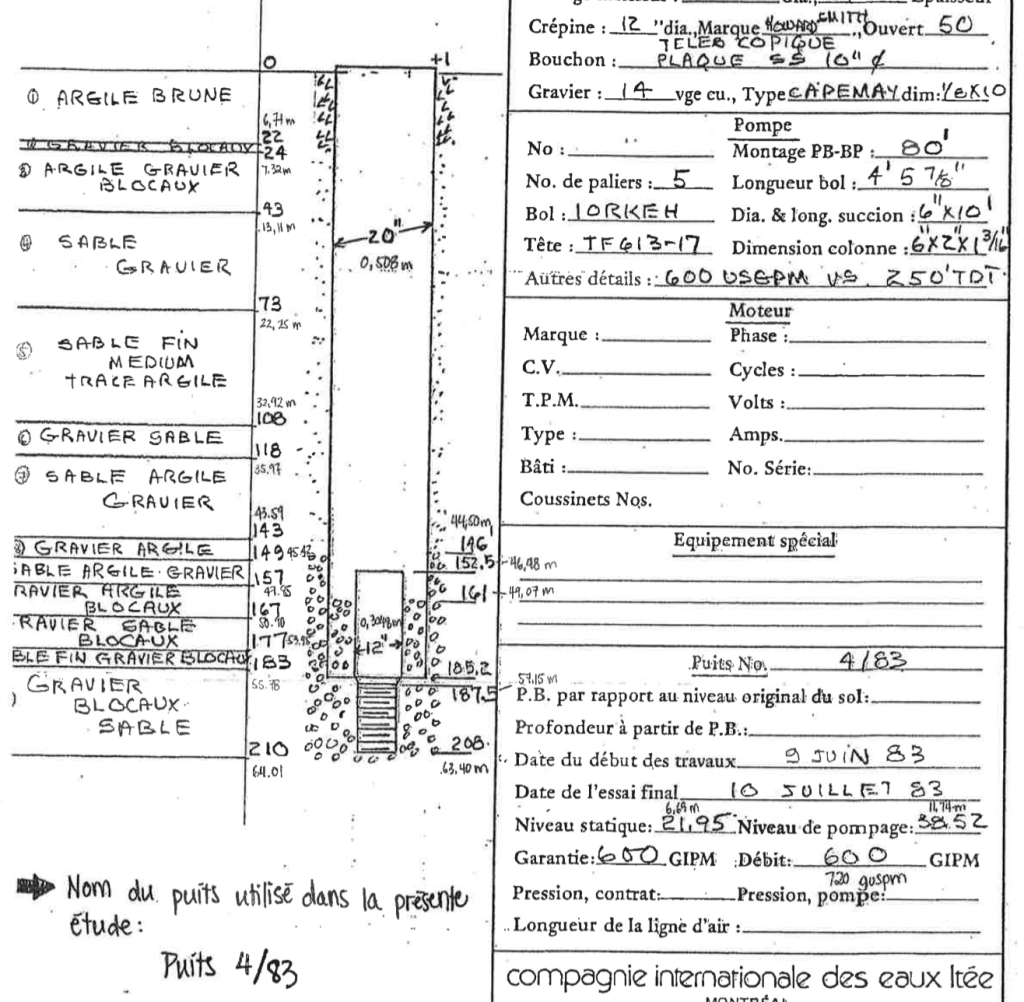 Crépine : 12 "dia., Marque HOWARD SMITH, Ouvert 50
TELESCOPIQUE
Bouchon : PLAQUE SS 10" ¢
Gravier : 14 vge cu., Type CAPEMAY dim:
Pompe
No :
Montage PB-BP : 80'
No. de paliers : 5 Longueur bol : 4' 5 7/8"
Bol : 10RKEH Dia. & long. succion : 6"X10'
Tête : TF613-17 Dimension colonne : 6"X2"X1 3/16"
Autres détails : 600 USGPM VS. 250'TDT
Moteur
Marque : Phase :
C.V. Cycles :
T.P.M. Volts :
Type : Amps.
Bâti : No. Série:
Coussinets Nos.
Equipement spécial
Puits No. 4/83
P.B. par rapport au niveau original du sol:
Profondeur à partir de P.B.:
Date du début des travaux 9 JUIN 83
Date de l'essai final 10 JUILLET 83
6,69 m 11,74 m
Niveau statique: 21,95 Niveau de pompage: 38.52
Garantie: 600 GIPM Débit: 600 GIPM
720 guspm
Pression, contrat: Pression, pompe:
Longueur de la ligne d'air :
compagnie internationale des eaux ltée
MONTRÉAL
0 +1
① ARGILE BRUNE
6,71 m
22
GRAVIER BLOCAUX
24
7.32m
③ ARGILE GRAVIER
BLOCAUX
43
13,11 m
④ SABLE
GRAVIER
20"
0,508 m
73
22,25 m
⑤ SABLE FIN
MEDIUM
TRACE ARGILE
32,92 m
108
⑥ GRAVIER SABLE
118
35.97
⑦ SABLE ARGILE
GRAVIER
43.59
143
GRAVIER ARGILE
149 45.42
SABLE ARGILE GRAVIER
157
47.85
RAVIER ARGILE
BLOCAUX
167
50.90
RAVIER SABLE
BLOCAUX
177 53.95
BLE FIN GRAVIER BLOCAUX
183
55.78
GRAVIER
BLOCAUX
SABLE
210
64.01
44,50 m
146
152.5 46,48 m
161 49,07 m
0,3048 m
12"
185.2
187.5 57.15 m
208
63,40 m
Nom du puits utilisé dans la présente
étude:
Puits 4/83